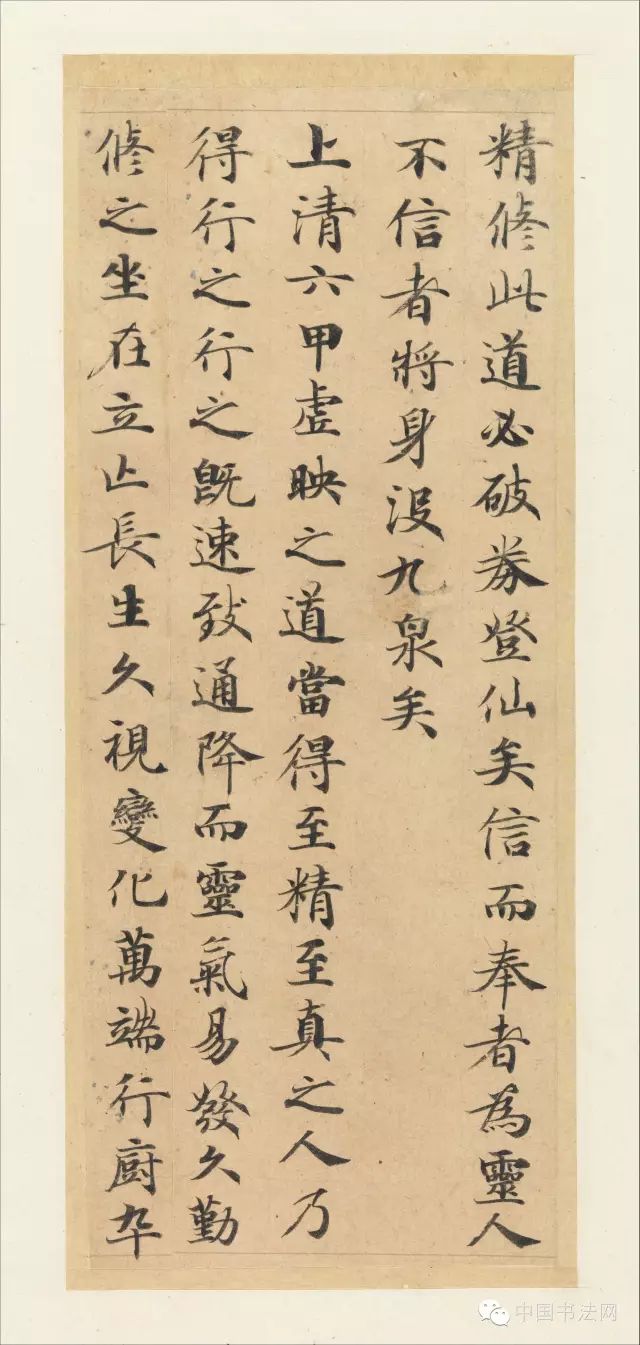 精脩此道必破券登仙矣信而奉者為靈人
不信者將身沒九泉矣
上清六甲虛映之道當得至精至真之人乃
得行之行之既速致通降而靈氣易發久勤
脩之坐在立亡長生久視變化萬端行廚卒
中国书法网